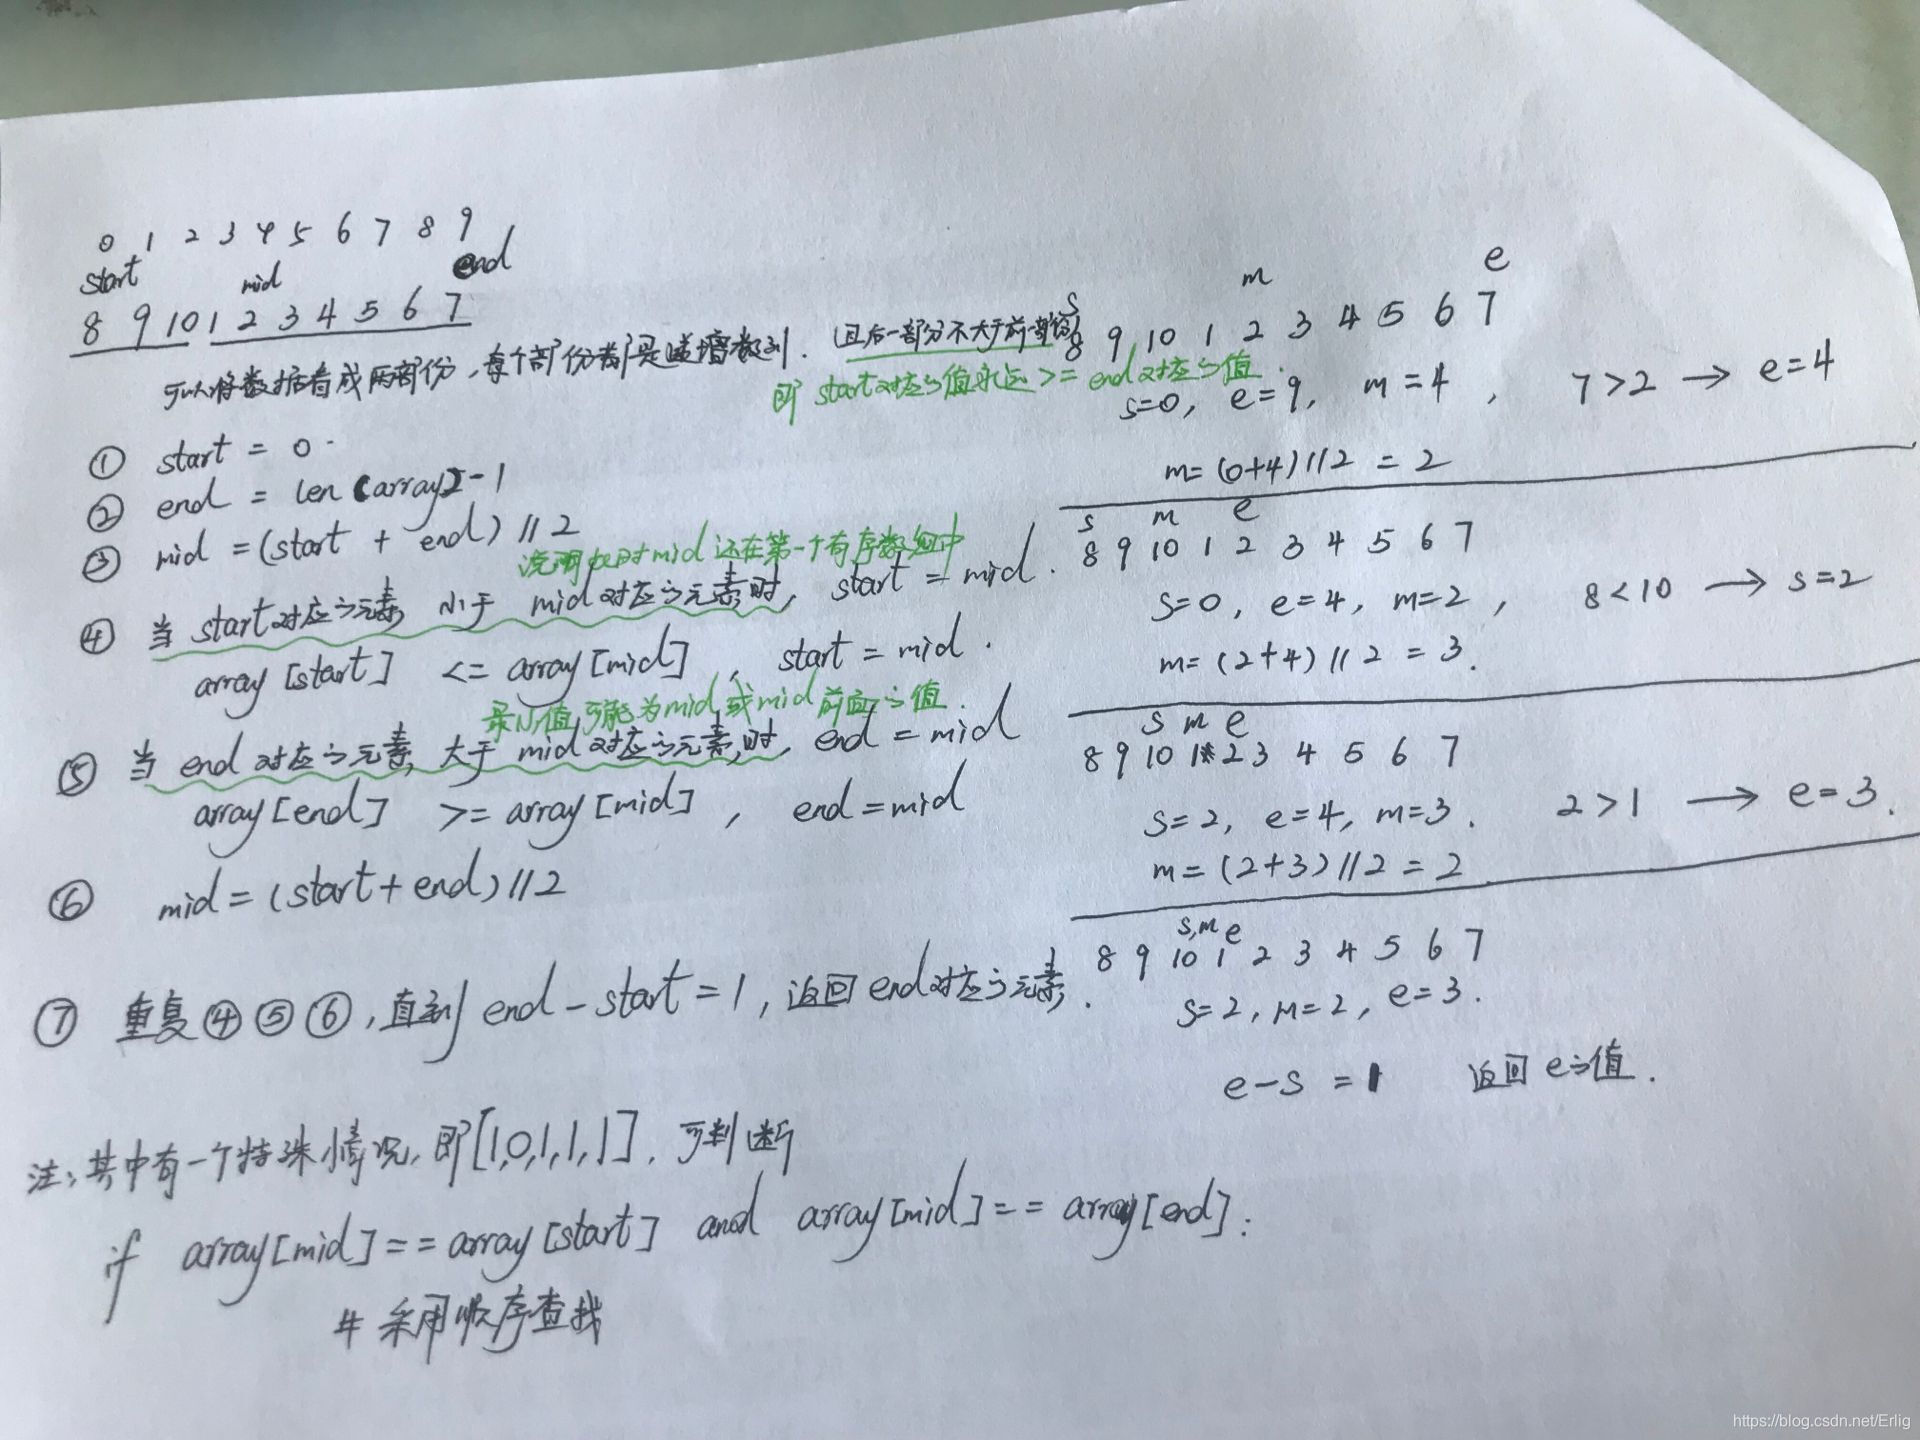 0 1 2 3 4 5 6 7 8 9
start mid end
8 9 10 1 2 3 4 5 6 7
可以将数据看成两部份，每个部份都是递增数列．且后一部分不大于前一部份
即 start对应的值永远 >= end对应的值．
① start = 0
② end = len(array)-1
③ mid = (start + end) // 2
说明此时mid还在第一个有序数组中
④ 当 start对应的元素 小于 mid对应的元素时， start = mid．
array [start] <= array [mid] ， start = mid．
最小值可能为mid或mid前面的值．
⑤ 当 end 对应的元素 大于 mid对应的元素时， end = mid
array [end] >= array [mid] ， end = mid
⑥ mid = (start + end) // 2
⑦ 重复④⑤⑥，直到 end - start = 1，返回end对应的元素．
注：其中有一个特殊情况，即[1,0,1,1,1]．可判断
if array[mid] == array[start] and array[mid] == array[end]:
# 采用顺序查找
m e
s
8 9 10 1 2 3 4 5 6 7
s=0, e=9, m=4 , 7>2 → e=4
m=(0+4)//2 = 2
s m e
8 9 10 1 2 3 4 5 6 7
s=0, e=4, m=2 , 8<10 → s=2
m=(2+4)//2 = 3.
s m e
8 9 10 1 2 3 4 5 6 7
s=2, e=4, m=3. 2>1 → e=3.
m=(2+3)//2 = 2
s,m e
8 9 10 1 2 3 4 5 6 7
s=2, m=2, e=3.
e-s = 1 返回 e的值．
https://blog.csdn.net/Erlig